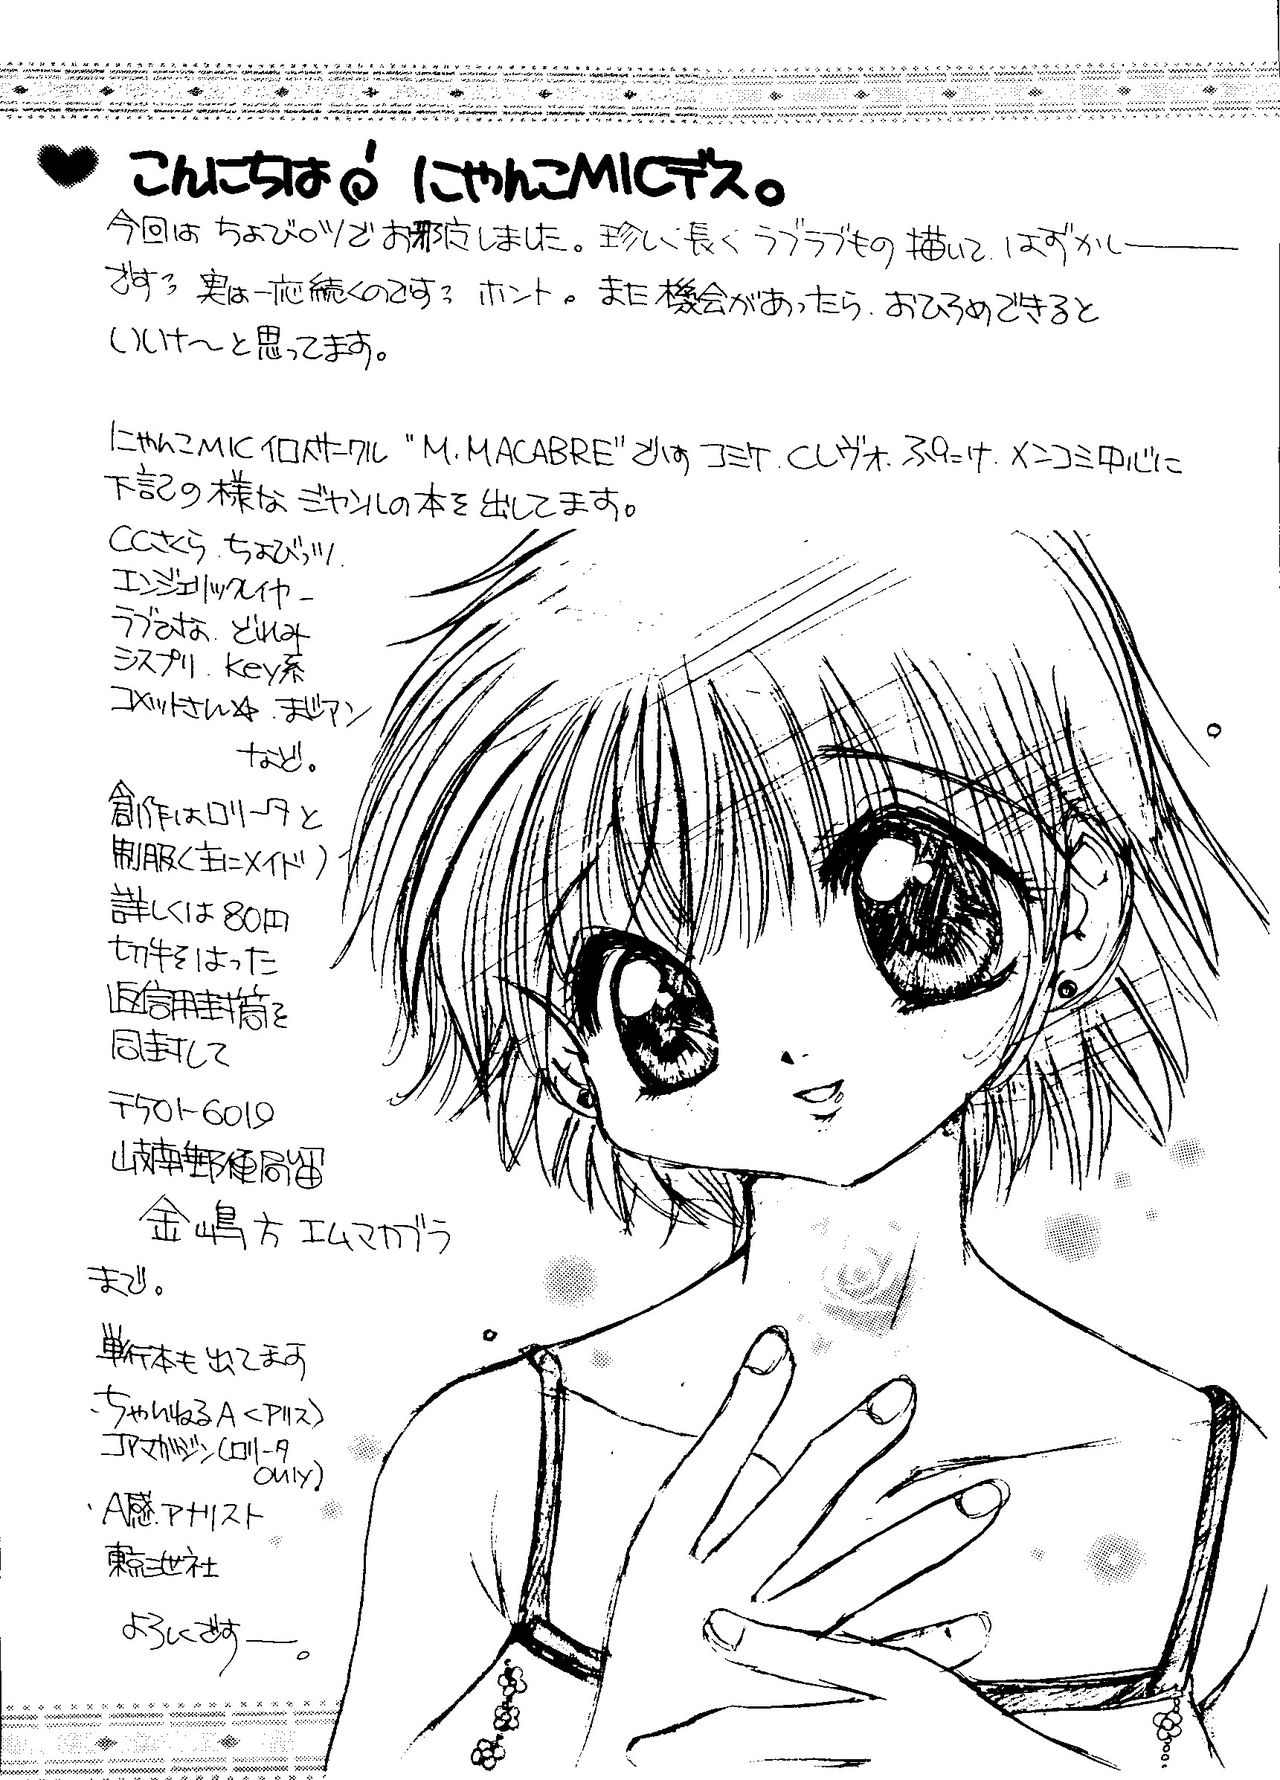 こんにちは にゃんこMICデス。
今回は ちょびッツで お邪魔しました。珍しく 長く ラブラブもの 描いて、はずかしー
です 実は一応続くのです ホント。また 機会があったら、おひろめできると
いいなーと 思ってます。
にゃんこMIC "M.MACABRE" です コミケ、Cレヴォ、ぷにけ、メンコミ中心に
下記の様な ジャンルの本を 出してます。
CCさくら、ちょびっツ、
エンジェリックレイヤー
ラブひな、どれみ
シスプリ、Key系
コメットさん☆、まじアン
など。
創作はロリータと
制服(主にメイド)
詳しくは 80円
切手をはった
返信用封筒を
同封して
〒501-6019
岐南郵便局留
金嶋方 エムマカブラ
まで。
単行本も 出てます
・ちゃいねるA<アリス)
コアマガジン(ロリータ
only)
・A感アナリスト
東京三世社
よろしくですー。